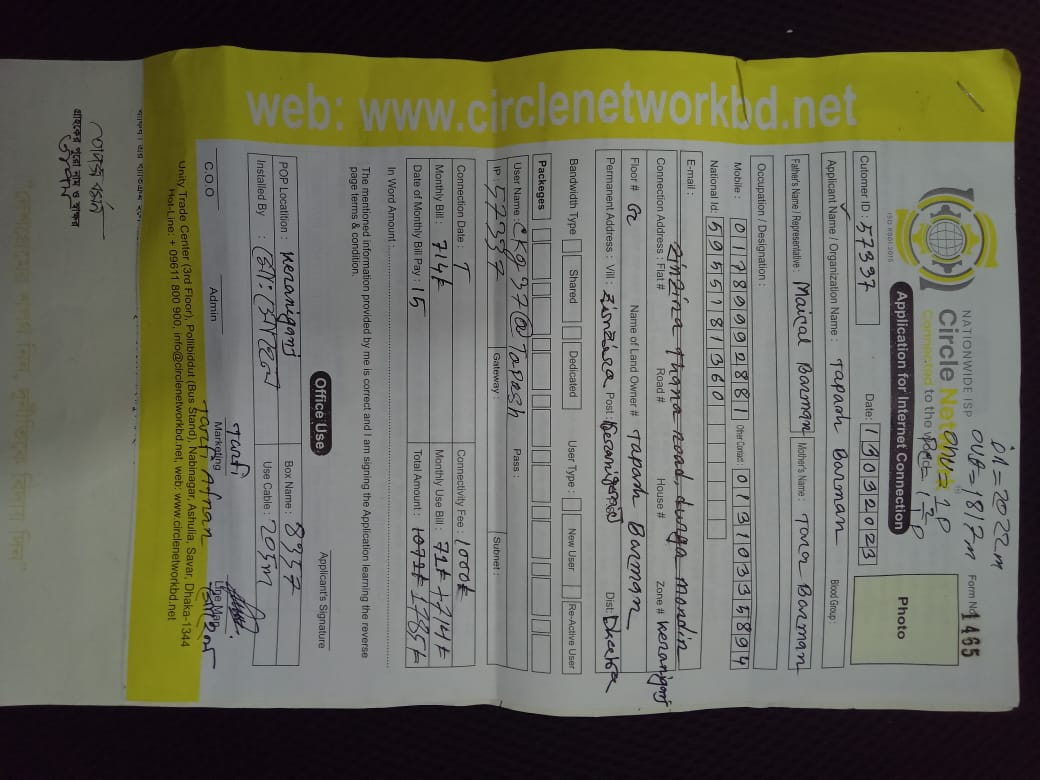 in = 2022m
out = 1817m
onu = 1p
NATIONWIDE ISP
Circle Network
Connected to the
ISO 9001:2015
Form No 1465
Application for Internet Connection
Photo
Cutomer ID : 57397
Date: 13032023
Applicant Name / Organization Name : Tapash Barman
Blood Group :
Father's Name / Representative : Maical Barman
Mother's Name : Taner Barman
Occupation / Designation :
Mobile : 01789992881
Other Contact : 01310335894
National Id: 5955181360
E-mail :
zinzira thana road, durga mondir
Connection Address : Flat # Road # House # Zone # keraniganj
Floor # G Name of Land Owner # Tapash Barman
Permanent Address : Vill : zinzira Post: keraniganj Dist: Dhaka
Bandwidth Type Shared Dedicated User Type : New User Re-Active User
Packeges
User Name : CKg97@Tapash Pass :
IP : 57397 Gateway : Subnet :
Connection Date : T Connectivity Fee : 1000৳
Monthly Bill : 714৳ Monthly Use Bill : 71৳ + 714৳
Date of Monthly Bill Pay : 15 Total Amount : 1071৳ 1785৳
In Word Amount :
The mentioned information provided by me is correct and I am signing the Application learning the reverse
page terms & condition.
Applicant's Signature
Office Use
POP Locatition : keraniganj Box Name : 8357
Installed By : Use Cable : 205m
C.O.O Admin Marketing Line Man
Unity Trade Center (3rd Floor), Pollibiddut (Bus Stand), Nabinagar, Ashulia, Savar, Dhaka-1344
Hot-Line: + 09611 800 900, info@circlenetworkbd.net, web: www.circlenetworkbd.net
web: www.circlenetworkbd.net
তাপস বর্মন
গ্রাহকের পুরো নাম ও স্বাক্ষর